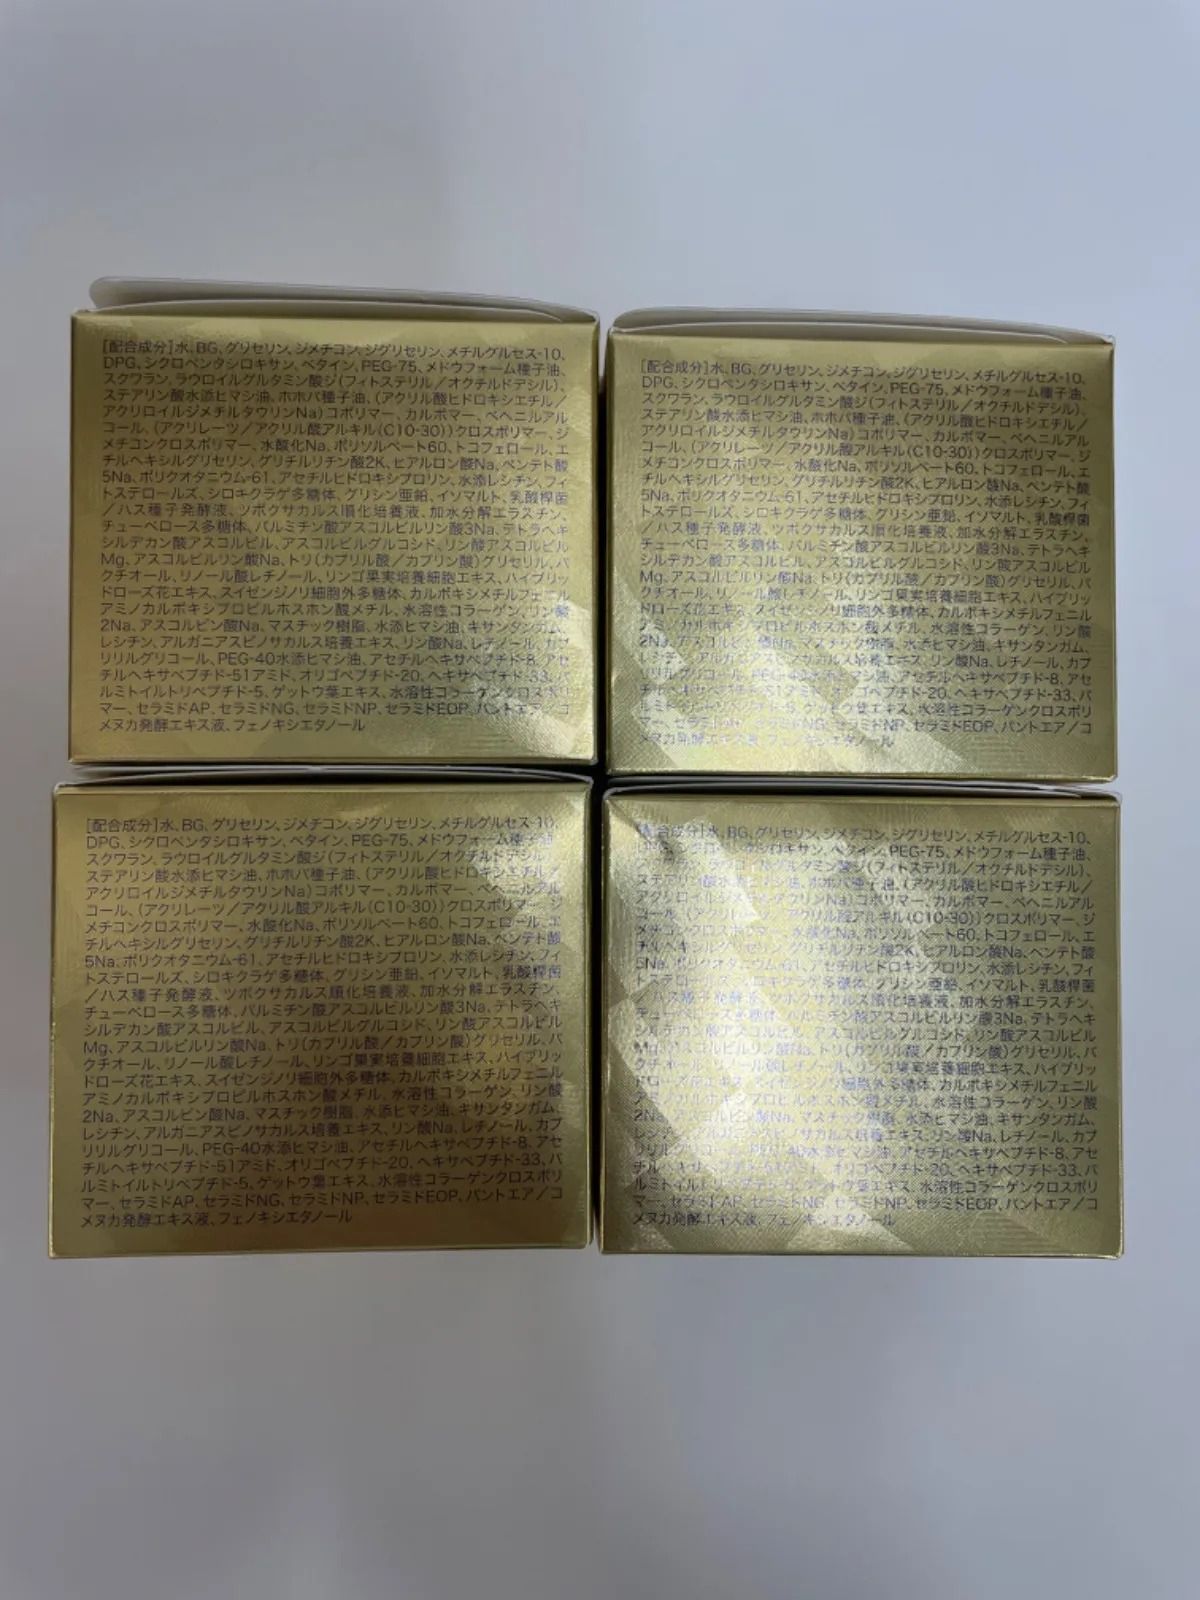 [配合成分]水、BG、グリセリン、ジメチコン、ジグリセリン、メチルグルセス-10、
DPG、シクロペンタシロキサン、ベタイン、PEG-75、メドウフォーム種子油、
スクワラン、ラウロイルグルタミン酸ジ(フィトステリル/オクチルドデシル)、
ステアリン酸水添ヒマシ油、ホホバ種子油、(アクリル酸ヒドロキシエチル/
アクリロイルジメチルタウリンNa)コポリマー、カルボマー、ベヘニルアル
コール、(アクリレーツ/アクリル酸アルキル(C10-30))クロスポリマー、ジ
メチコンクロスポリマー、水酸化Na、ポリソルベート60、トコフェロール、エ
チルヘキシルグリセリン、グリチルリチン酸2K、ヒアルロン酸Na、ペンテト酸
5Na、ポリクオタニウム-61、アセチルヒドロキシプロリン、水添レシチン、フィ
トステロールズ、シロキクラゲ多糖体、グリシン亜鉛、イソマルト、乳酸桿菌
/ハス種子発酵液、ツボクサカルス順化培養液、加水分解エラスチン、
チューベロース多糖体、パルミチン酸アスコルビルリン酸3Na、テトラヘキ
シルデカン酸アスコルビル、アスコルビルグルコシド、リン酸アスコルビル
Mg、アスコルビルリン酸Na、トリ(カプリル酸/カプリン酸)グリセリル、バ
クチオール、リノール酸レチノール、リンゴ果実培養細胞エキス、ハイブリッ
ドローズ花エキス、スイゼンジノリ細胞外多糖体、カルボキシメチルフェニル
アミノカルボキシプロピルホスホン酸メチル、水溶性コラーゲン、リン酸
2Na、アスコルビン酸Na、マスチック樹脂、水添ヒマシ油、キサンタンガム、
レシチン、アルガニアスピノサカルス培養エキス、リン酸Na、レチノール、カプ
リリルグリコール、PEG-40水添ヒマシ油、アセチルヘキサペプチド-8、アセ
チルヘキサペプチド-51アミド、オリゴペプチド-20、ヘキサペプチド-33、パ
ルミトイルトリペプチド-5、ゲットウ葉エキス、水溶性コラーゲンクロスポリ
マー、セラミドAP、セラミドNG、セラミドNP、セラミドEOP、パントエア/コ
メヌカ発酵エキス液、フェノキシエタノール
[配合成分]水、BG、グリセリン、ジメチコン、ジグリセリン、メチルグルセス-10、
DPG、シクロペンタシロキサン、ベタイン、PEG-75、メドウフォーム種子油、
スクワラン、ラウロイルグルタミン酸ジ(フィトステリル/オクチルドデシル)、
ステアリン酸水添ヒマシ油、ホホバ種子油、(アクリル酸ヒドロキシエチル/
アクリロイルジメチルタウリンNa)コポリマー、カルボマー、ベヘニルアル
コール、(アクリレーツ/アクリル酸アルキル(C10-30))クロスポリマー、ジ
メチコンクロスポリマー、水酸化Na、ポリソルベート60、トコフェロール、エ
チルヘキシルグリセリン、グリチルリチン酸2K、ヒアルロン酸Na、ペンテト酸
5Na、ポリクオタニウム-61、アセチルヒドロキシプロリン、水添レシチン、フィ
トステロールズ、シロキクラゲ多糖体、グリシン亜鉛、イソマルト、乳酸桿菌
/ハス種子発酵液、ツボクサカルス順化培養液、加水分解エラスチン、
チューベロース多糖体、パルミチン酸アスコルビルリン酸3Na、テトラヘキ
シルデカン酸アスコルビル、アスコルビルグルコシド、リン酸アスコルビル
Mg、アスコルビルリン酸Na、トリ(カプリル酸/カプリン酸)グリセリル、バ
クチオール、リノール酸レチノール、リンゴ果実培養細胞エキス、ハイブリッ
ドローズ花エキス、スイゼンジノリ細胞外多糖体、カルボキシメチルフェニル
アミノカルボキシプロピルホスホン酸メチル、水溶性コラーゲン、リン酸
2Na、アスコルビン酸Na、マスチック樹脂、水添ヒマシ油、キサンタンガム、
レシチン、アルガニアスピノサカルス培養エキス、リン酸Na、レチノール、カプ
リリルグリコール、PEG-40水添ヒマシ油、アセチルヘキサペプチド-8、アセ
チルヘキサペプチド-51アミド、オリゴペプチド-20、ヘキサペプチド-33、パ
ルミトイルトリペプチド-5、ゲットウ葉エキス、水溶性コラーゲンクロスポリ
マー、セラミドAP、セラミドNG、セラミドNP、セラミドEOP、パントエア/コ
メヌカ発酵エキス液、フェノキシエタノール
[配合成分]水、BG、グリセリン、ジメチコン、ジグリセリン、メチルグルセス-10、
DPG、シクロペンタシロキサン、ベタイン、PEG-75、メドウフォーム種子油、
スクワラン、ラウロイルグルタミン酸ジ(フィトステリル/オクチルドデシル)、
ステアリン酸水添ヒマシ油、ホホバ種子油、(アクリル酸ヒドロキシエチル/
アクリロイルジメチルタウリンNa)コポリマー、カルボマー、ベヘニルアル
コール、(アクリレーツ/アクリル酸アルキル(C10-30))クロスポリマー、ジ
メチコンクロスポリマー、水酸化Na、ポリソルベート60、トコフェロール、エ
チルヘキシルグリセリン、グリチルリチン酸2K、ヒアルロン酸Na、ペンテト酸
5Na、ポリクオタニウム-61、アセチルヒドロキシプロリン、水添レシチン、フィ
トステロールズ、シロキクラゲ多糖体、グリシン亜鉛、イソマルト、乳酸桿菌
/ハス種子発酵液、ツボクサカルス順化培養液、加水分解エラスチン、
チューベロース多糖体、パルミチン酸アスコルビルリン酸3Na、テトラヘキ
シルデカン酸アスコルビル、アスコルビルグルコシド、リン酸アスコルビル
Mg、アスコルビルリン酸Na、トリ(カプリル酸/カプリン酸)グリセリル、バ
クチオール、リノール酸レチノール、リンゴ果実培養細胞エキス、ハイブリッ
ドローズ花エキス、スイゼンジノリ細胞外多糖体、カルボキシメチルフェニル
アミノカルボキシプロピルホスホン酸メチル、水溶性コラーゲン、リン酸
2Na、アスコルビン酸Na、マスチック樹脂、水添ヒマシ油、キサンタンガム、
レシチン、アルガニアスピノサカルス培養エキス、リン酸Na、レチノール、カプ
リリルグリコール、PEG-40水添ヒマシ油、アセチルヘキサペプチド-8、アセ
チルヘキサペプチド-51アミド、オリゴペプチド-20、ヘキサペプチド-33、パ
ルミトイルトリペプチド-5、ゲットウ葉エキス、水溶性コラーゲンクロスポリ
マー、セラミドAP、セラミドNG、セラミドNP、セラミドEOP、パントエア/コ
メヌカ発酵エキス液、フェノキシエタノール
[配合成分]水、BG、グリセリン、ジメチコン、ジグリセリン、メチルグルセス-10、
ベタイン、PEG-75、メドウフォーム種子油、
(フィトステリル/オクチルドデシル)、
ホホバ種子油、(アクリル酸ヒドロキシエチル/
コポリマー、カルボマー、ベヘニルアル
コール、(アクリレーツ/アクリル酸アルキル(C10-30))クロスポリマー、ジ
メチコンクロスポリマー、水酸化Na、ポリソルベート60、トコフェロール、エ
チルヘキシルグリセリン、グリチルリチン酸2K、ヒアルロン酸Na、ペンテト酸
5Na、ポリクオタニウム-61、アセチルヒドロキシプロリン、水添レシチン、フィ
グリシン亜鉛、イソマルト、乳酸桿菌
ツボクサカルス順化培養液、加水分解エラスチン、
パルミチン酸アスコルビルリン酸3Na、テトラヘキ
アスコルビルグルコシド、リン酸アスコルビル
トリ(カプリル酸/カプリン酸)グリセリル、バ
リンゴ果実培養細胞エキス、ハイブリッ
スイゼンジノリ細胞外多糖体、カルボキシメチルフェニル
アミノカルボキシプロピルホスホン酸メチル、水溶性コラーゲン、リン酸
2Na、アスコルビン酸Na、マスチック樹脂、水添ヒマシ油、キサンタンガム、
培養エキス、リン酸Na、レチノール、カプ
水添ヒマシ油、アセチルヘキサペプチド-8、アセ
オリゴペプチド-20、ヘキサペプチド-33、パ
ゲットウ葉エキス、水溶性コラーゲンクロスポリ
マー、セラミドAP、セラミドNG、セラミドNP、セラミドEOP、パントエア/コ
メヌカ発酵エキス液、フェノキシエタノール